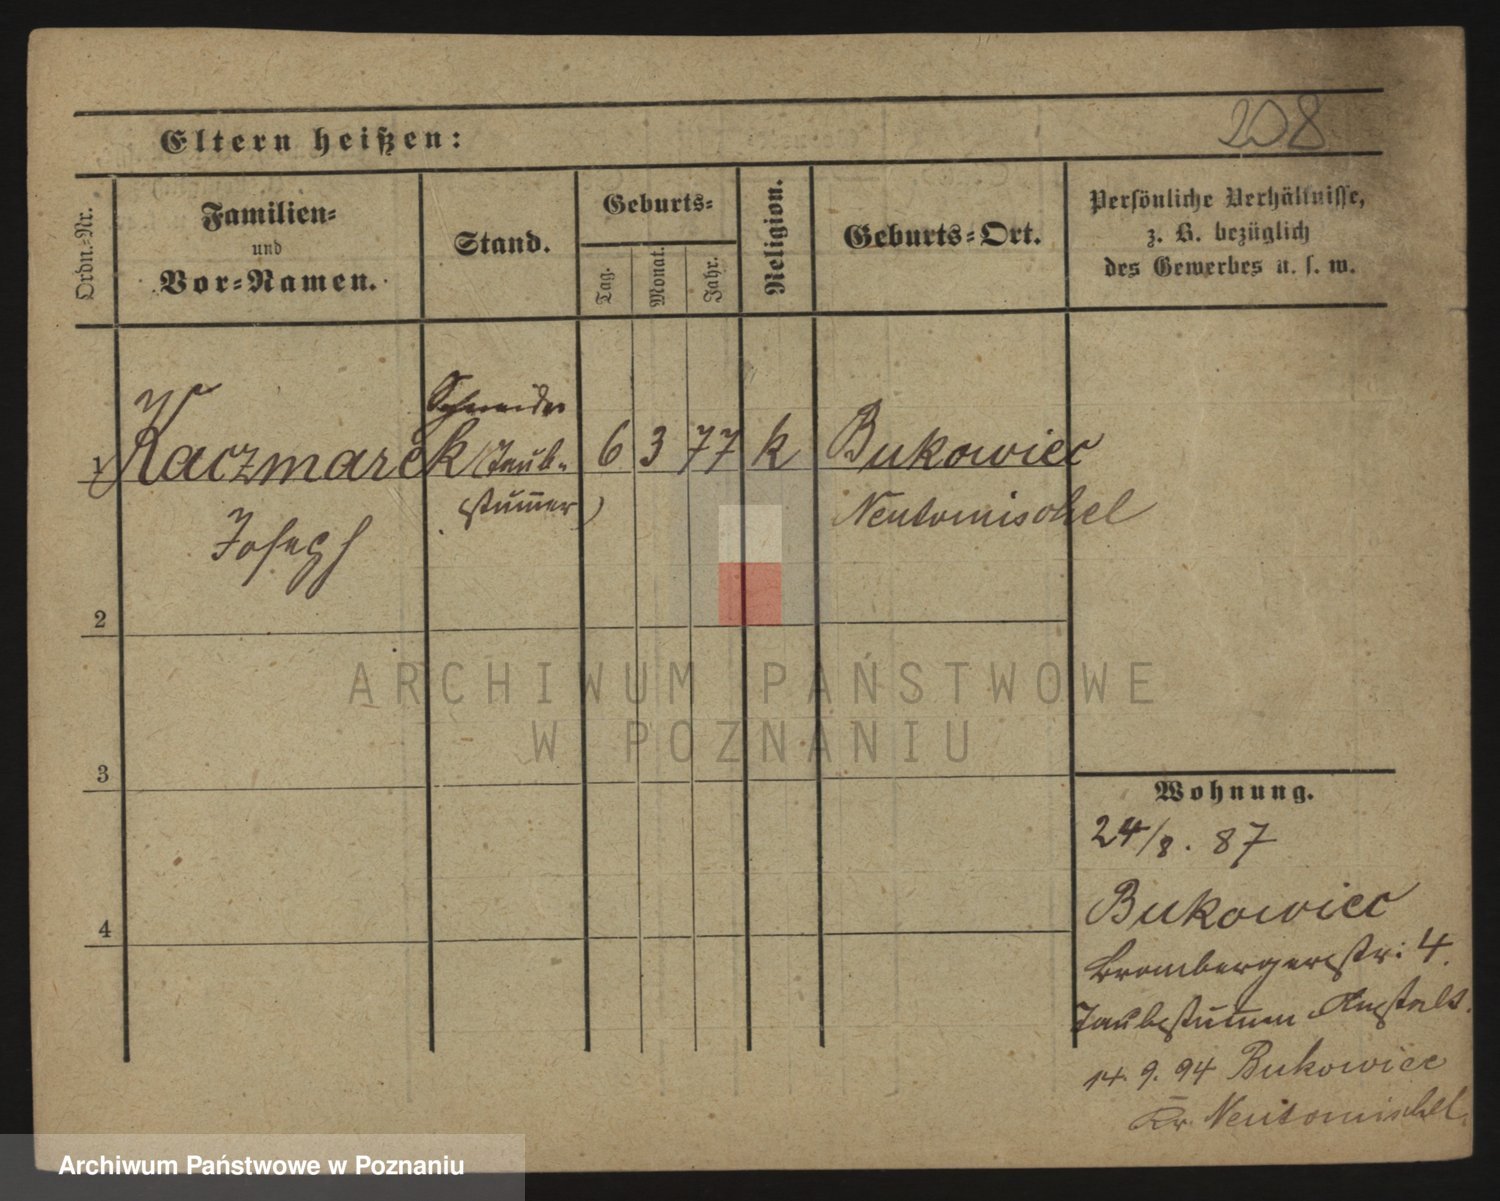 208
Eltern heißen:
Ordn.-Nr.
Familien-
und
Vor-Namen.
Stand.
Geburts-
Tag.
Monat.
Jahr.
Religion.
Geburts-Ort.
Persönliche Verhältnisse,
z. B. bezüglich
des Gewerbes u. s. w.
Schneider
1 Kaczmarek (Taub- 6 3 77 k Bukowiec
stummer) Neutomischel
Joseph
2
3
4
Wohnung.
24/8. 87
Bukowiec
Brombergerstr: 4.
Taubstummen Anstalt.
14. 9. 94 Bukowiec
Kr. Neutomischel.
ARCHIWUM PAŃSTWOWE
W POZNANIU
Archiwum Państwowe w Poznaniu